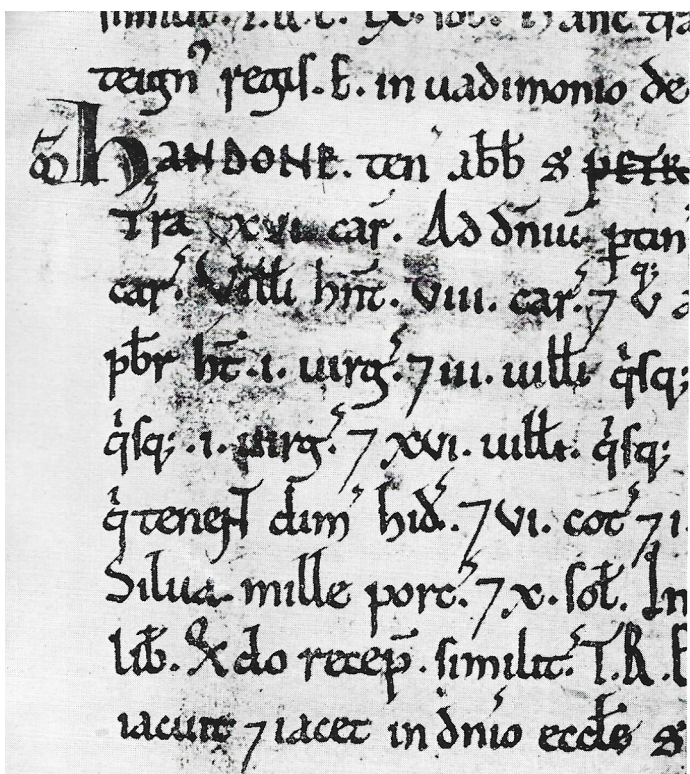 similit. T.R.E. IX. sol. Hanc tra
teign' regis. E. in uadimonio de
ω HANDONE. ten' abb S PETRI
Tra xvi. car. Ad dniū ptin
car. Uilli hn̄t. VIII. car. ⁊ V q; a
pbr ht. i. uirg. ⁊ iii. uilli q̇sq;
q̇sq; .i. uirg. ⁊ xvi. uilli. q̇sq;
q̇ teneN dim hid. ⁊ VI. cot ⁊ i
Silua mille porc. ⁊ x. sol. In
lib. Qdo recep̄. similit. T.R.E
iacuit ⁊ iacet in dnio eccle S